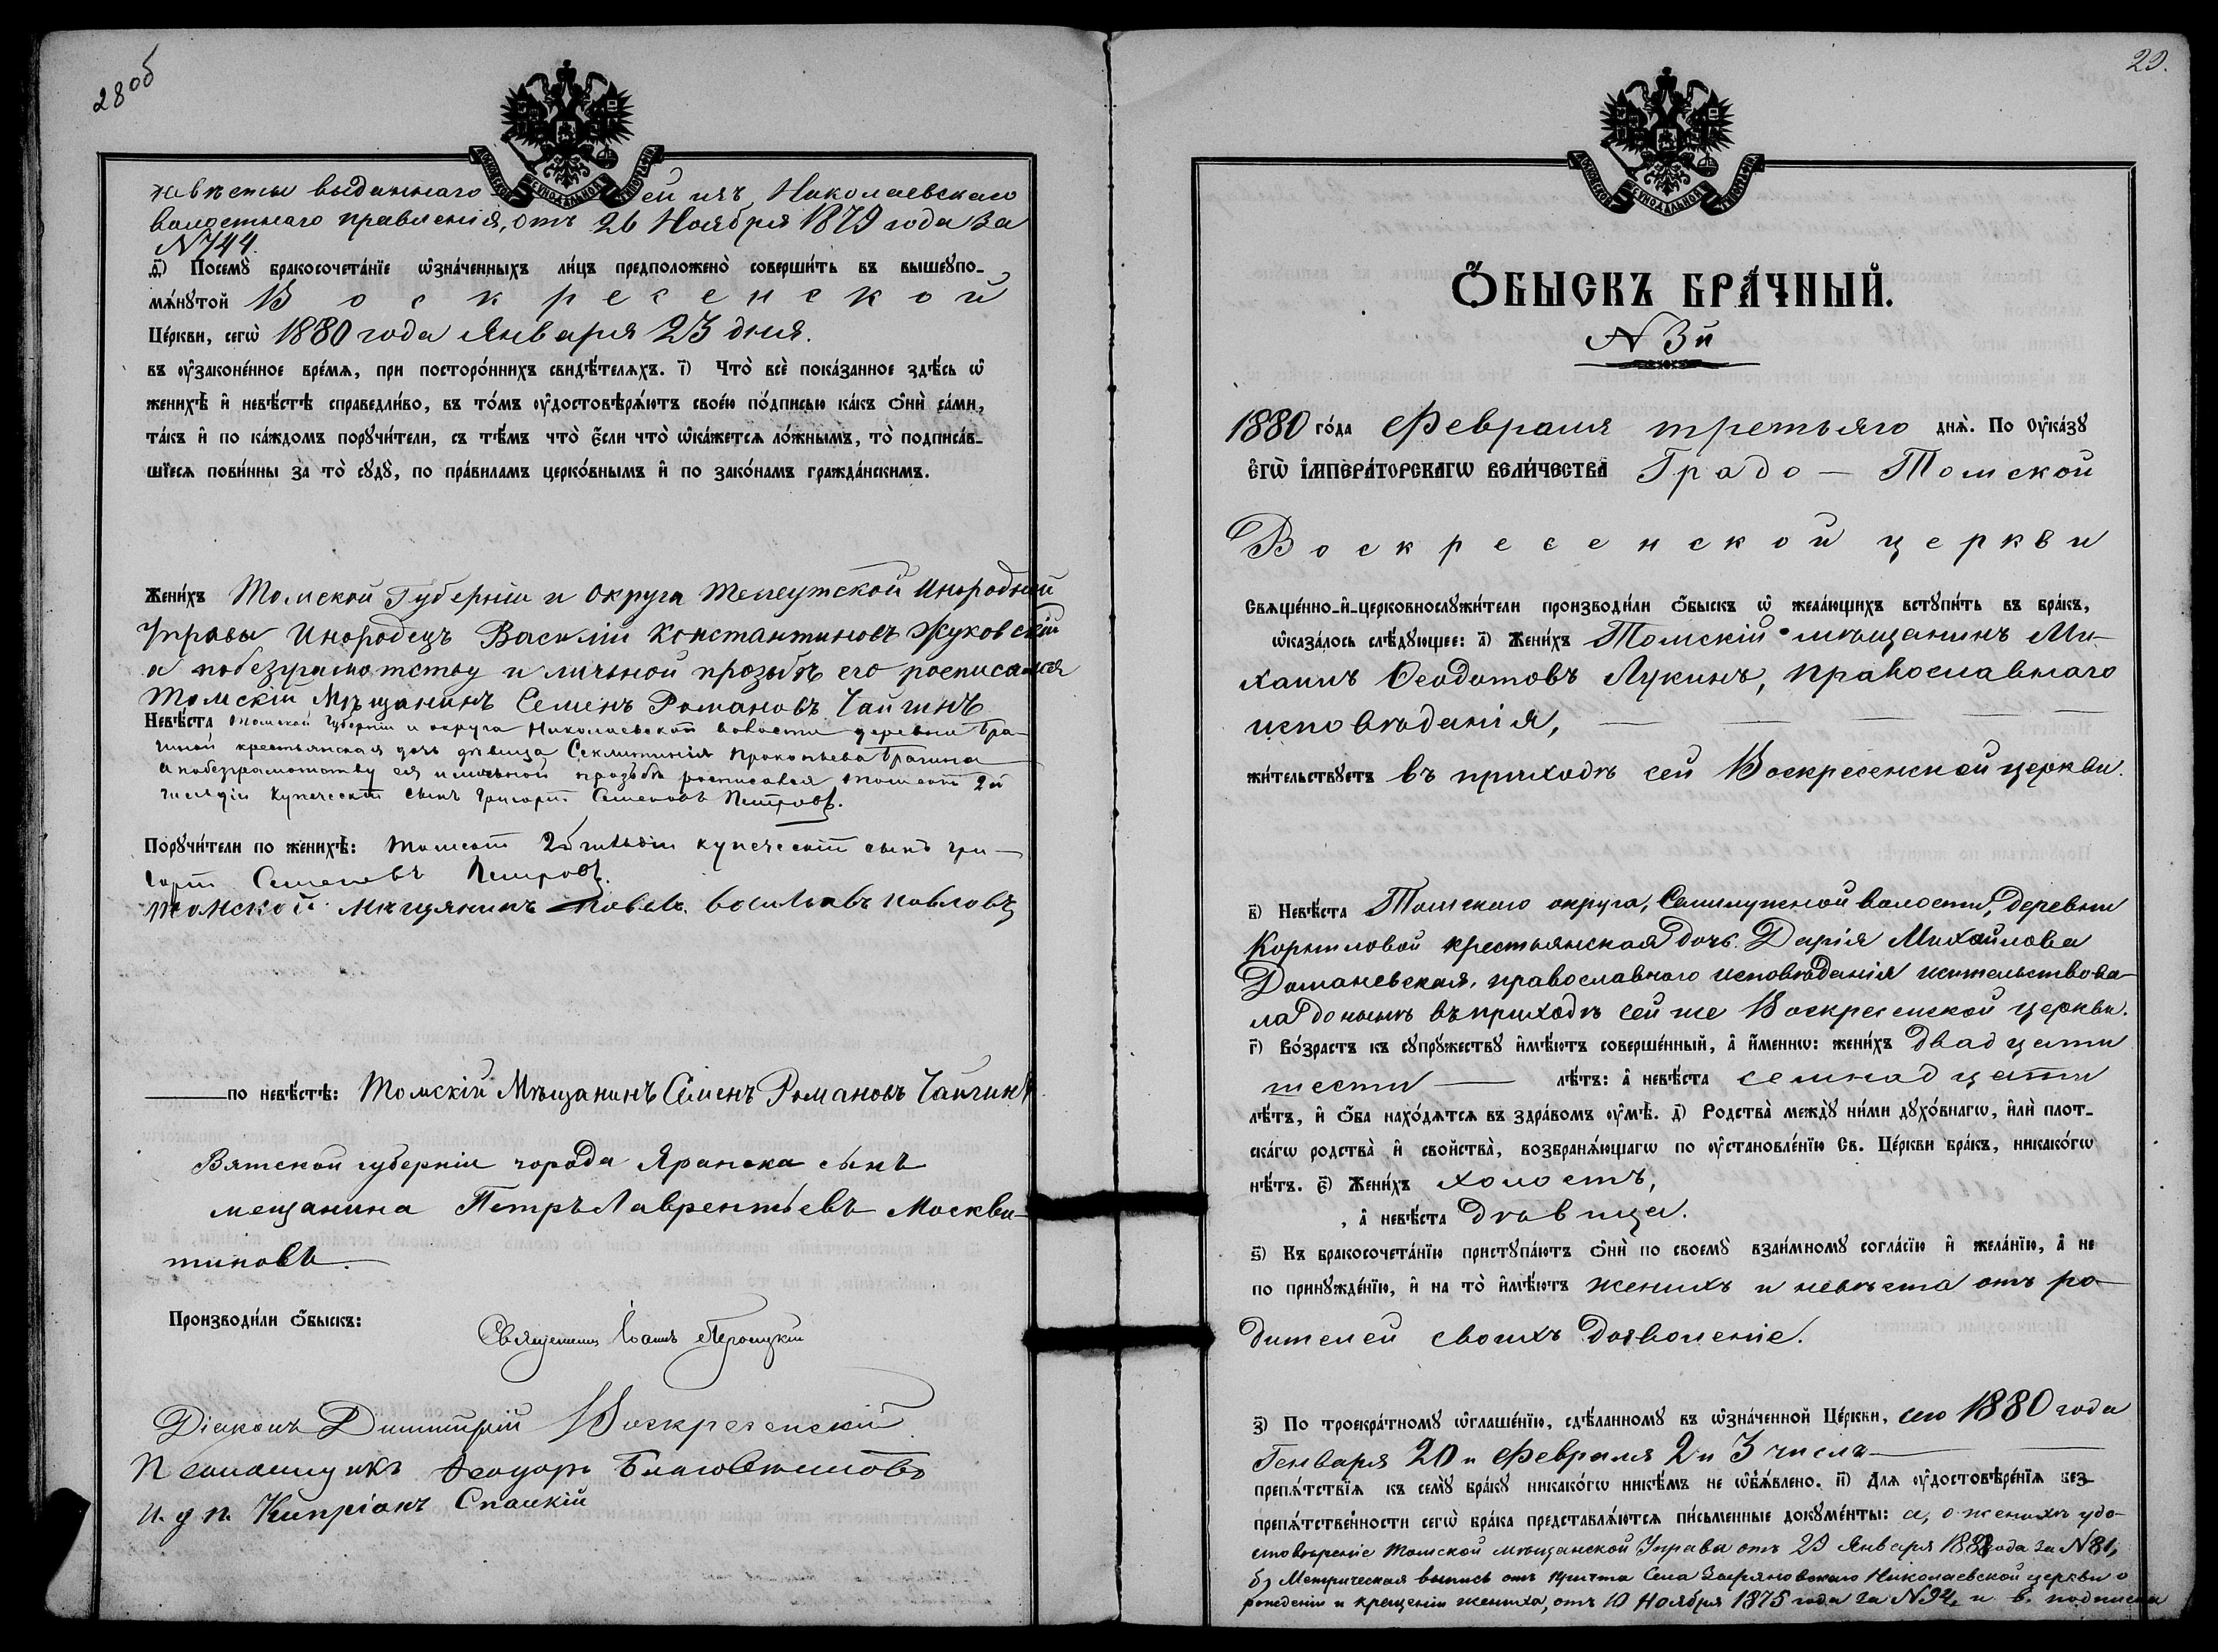 28об
невѣсты выданнаго ей изъ Николаевскаго
волостнаго правленія, отъ 26 Ноября 1879 года за
N 744.
ѳ҃) Посемꙋ̀ бракосочета́нїе ѡ҆зна́ченныхъ ли́цъ предположено̀ соверши́ть въ вышеꙋпо-
мѧ́нꙋтой Воскресенской
Це́ркви, сегѡ̀ 1880 года Января 23 дня.
въ ᲂу҆законе́нное вре́мѧ, при посторо́ннихъ свидѣ́телѧхъ. і҃) Что̀ всѐ пока́занное здѣ́сь ѡ҆
женихѣ̀ и҆ невѣ́стѣ справедли́во, въ то́мъ ᲂу҆достовѣрѧ́ютъ свое́ю по́дписью ка́къ ѻ҆нѝ са́ми,
та́къ и҆ по ка́ждомъ порꙋчи́тели, съ тѣ́мъ что̀ є҆́сли что̀ ѡ҆ка́жетсѧ ло́жнымъ, то̀ подписа́в-
шїесѧ пови́нны за то̀ сꙋдꙋ̀, по пра́виламъ церко́внымъ и҆ по зако́намъ гражда́нскимъ.
Жени́хъ Томской Губерніи и округа Телеутской Инородной
Управы Инородецъ Василій Константиновъ Жуковскій
а побезграмотству и личной прозьбѣ его росписался
томскій Мѣщанинъ Семенъ Романовъ Чайгинъ
Невѣ́ста Томской Губерніи и округа Николаевской волости деревни Бра-
гиной крестьянская дочь дѣвица Секлитинія Прокопьева Брагина
а побезграмотству ея и личной прозьбѣ росписался томскій 2й
гильдіи Купеческій сынъ Григорій Семеновъ Петровъ.
Порꙋчи́тели по женихѣ̀: томскій 2й гильдіи купеческій сынъ Гри-
горій Семеновъ Петровъ.
томской мѣщянинъ Павелъ Васильевъ Павловъ
по невѣ́стѣ: Томскій Мѣщанинъ Семенъ Романовъ Чайгинъ
Вятской губерніи города Яранска сынъ
мещанина Петръ Лаврентьевъ Москви-
тиновъ.
Производи́ли ѻ҆́быскъ:
Священникъ Іоаннъ
Діаконъ Димитрій Воскресенскій
Псаломщикъ Ѳеодоръ
и. д. п. Кипріанъ Спаскій
29.
Ѻ҆́БЫСКЪ БРА́ЧНЫЙ.
N 3й
1880 го́да Февраля третьяго днѧ̀. По Оу҆ка́зꙋ
Є҆ГѠ̀ І҆МПЕРА́ТОРСКАГѠ ВЕЛИ́ЧЕСТВА Градо - Томской
Воскресенской церкви
Свѧще́нно-и҆-церковнослꙋжи́тели производи́ли ѻ҆́быскъ ѡ҆ жела́ющихъ встꙋпи́ть въ бра́къ,
ѡ҆каза́лось слѣ́дꙋющее: а҃) Жени́хъ Томскій мѣщанинъ Ми-
хаилъ Ѳеодотовъ Лукинъ, православнаго
исповѣданія,
жи́тельствꙋетъ въ приходѣ сей Воскресенской церкви.
в҃) Невѣ́ста Томскаго округа, Семилужной волости, деревни
Корниловой крестьянская дочь Дарія Михайлова
Доманевская, православнаго исповѣданія жительствова-
ла донынѣ въ приходѣ сей же Воскресенской церкви.
г҃) Во́зрастъ къ сꙋпрꙋ́жествꙋ и҆мѣ́ютъ соверше́нный, а҆ и҆́меннѡ: жени́хъ двадцати
шести лѣ́тъ: а҆ невѣ́ста семнадцати
лѣ́тъ, и҆ ѻ҆́ба нахо́дѧтсѧ въ здра́вомъ ᲂу҆мѣ̀. д҃) Родства̀ междꙋ̀ ни́ми дꙋхо́внагѡ, и҆лѝ плот-
ска́гѡ родства̀ и҆ свойства̀, возбранѧ́ющагѡ по ᲂу҆становле́нїю Св. Це́ркви бра́къ, никако́гѡ
нѣ́тъ. є҃) Жени́хъ холостъ,
, а҆ невѣ́ста дѣвица.
ѕ҃) Къ бракосочета́нїю пристꙋпа́ютъ ѻ҆нѝ по своемꙋ̀ взаи́мномꙋ согла́сїю и҆ жела́нїю, а҆ не
по принꙋжде́нїю, и҆ на то̀ и҆мѣ́ютъ женихъ и невѣста отъ ро-
дителей своихъ дозволеніе.
з҃) По троекра́тномꙋ ѡ҆глаше́нїю, сдѣ́ланномꙋ въ ѡ҆зна́ченной Це́ркви, сего 1880 года
Генваря 20 и Февраля 2 и 3 числа
препѧ́тствїѧ къ семꙋ̀ бра́кꙋ никако́гѡ никѣ́мъ не ѡ҆б̾ѧ́влено. и҃) Длѧ ᲂу҆достовѣре́нїѧ без-
препѧ́тственности сегѡ̀ бра́ка представлѧ́ютсѧ пи́сьменные докꙋме́нты: а, о женихѣ удо-
стовѣреніе Томской мѣщанской Управы отъ 29 Января 1880 года за N 81,
б) Метрическая выпись отъ причта Села Николаевской церкви о
рожденіи и крещеніи жениха, отъ 10 Ноября 1875 года за N 94, и в. подписка